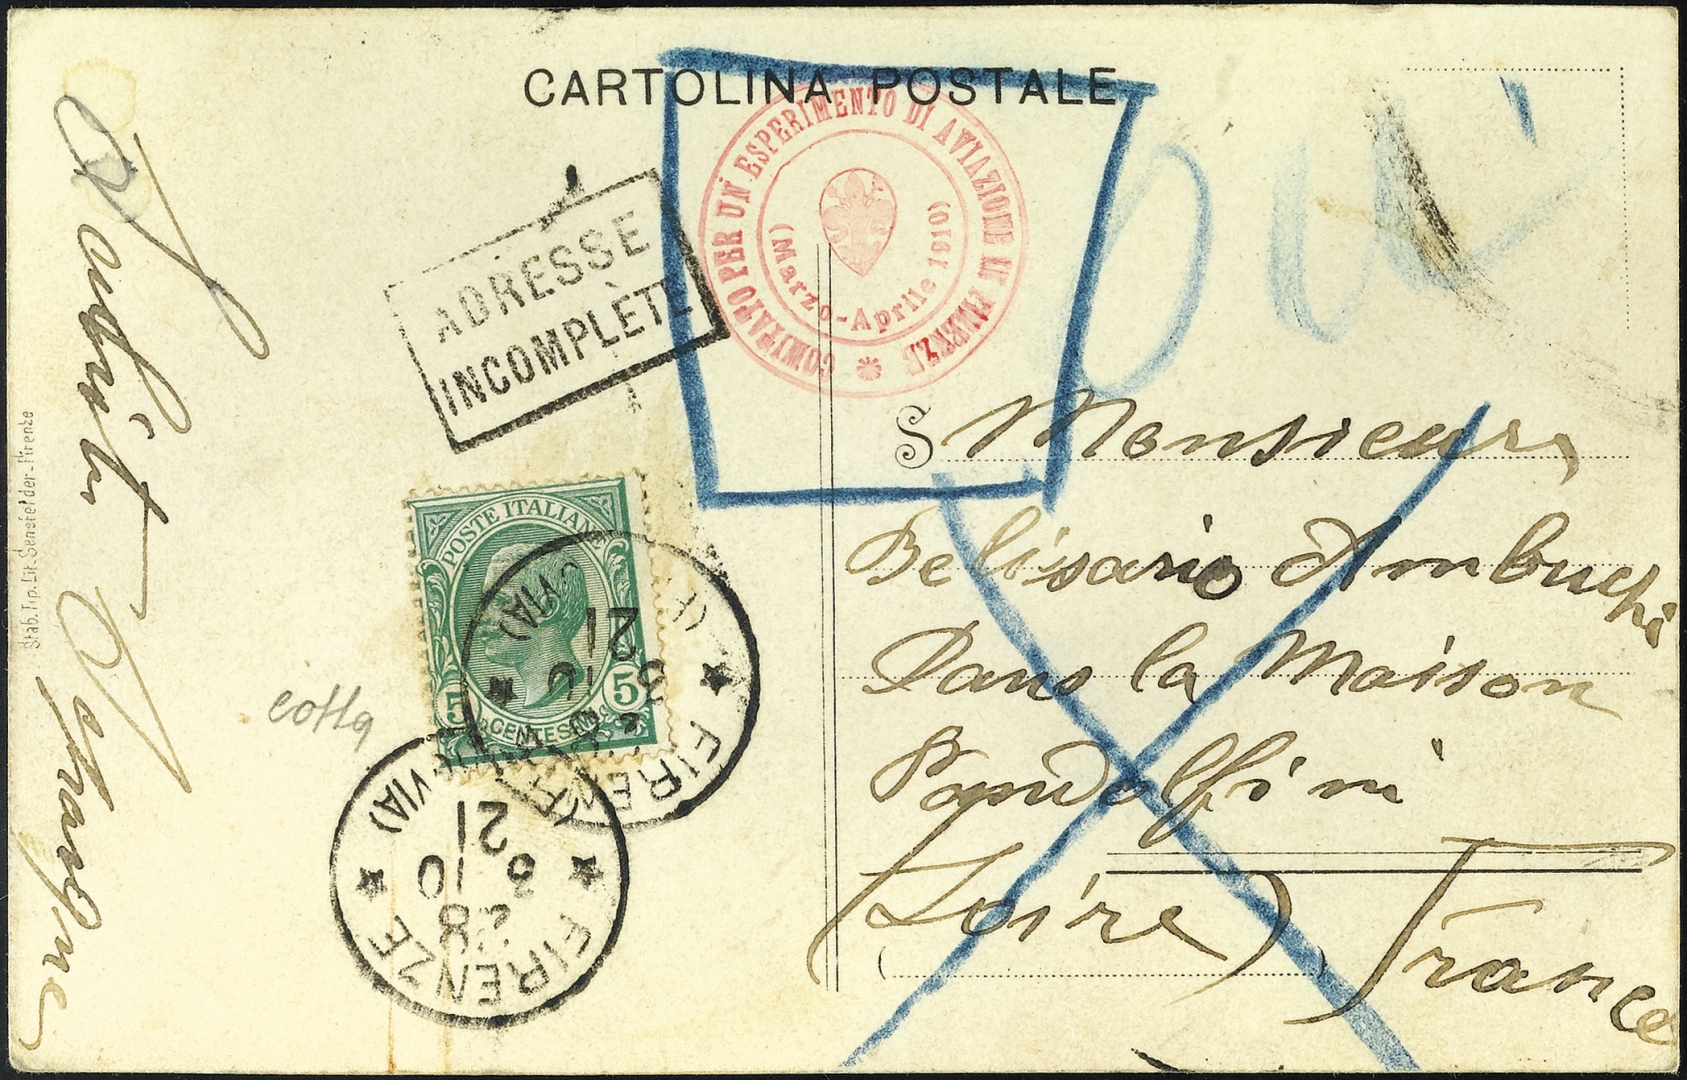 CARTOLINA POSTALE
COMITATO PER UN ESPERIMENTO DI AVIAZIONE IN FIRENZE
(Marzo-Aprile 1910)
ADRESSE
INCOMPLÈTE
POSTE ITALIANE
5 CENTESIMI 5
FIRENZE
28
3
10
21
FIRENZE
28
3
10
21
S Monsieur
Belisario Ambuchi
Dans la Maison
Pandolfini
(Loire) France
Stab. Tip. Lit. Senefelder-Firenze